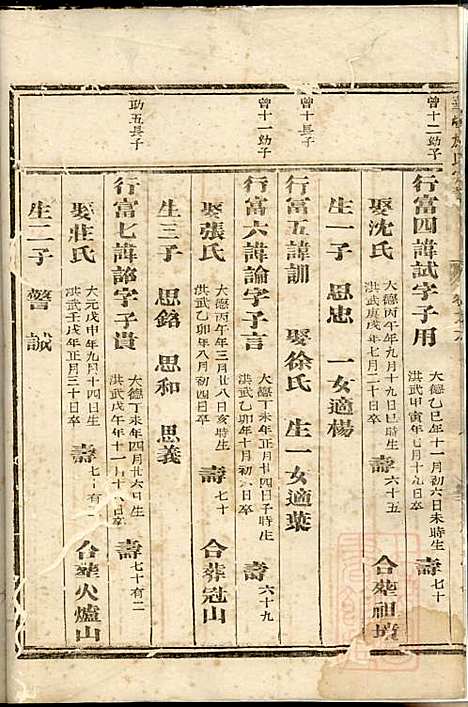 曾十二幼子
行富四諱試字子用 大德乙巳年十一月初六日未時生 洪武甲寅年七月十九日卒 壽七十
娶沈氏 大德丙午年九月十九日巳時生 洪武庚戌年七月二十日卒 壽六十五 合葬祖墳
生一子 思忠 一女適楊
曾十長子
行富五諱訓 娶徐氏 生一女適葉
曾十一幼子
行富六諱論字子言 大德丁未年正月廿四日子時生 洪武乙卯年十月初六日卒 壽六十九
娶張氏 大德丙午年三月廿八日亥時生 洪武乙卯年八月初四日卒 壽七十 合葬冠山
生三子 思銘 思和 思義
助五長子
行富七諱諮字子貴 大德丁未年四月廿六日生 洪武戊午年十一月十八日卒 壽七十有二
娶莊氏 大元戊申年九月十四日生 洪武壬戌年正月三十日卒 壽七十有二 合葬火爐山
生二子 警 誠